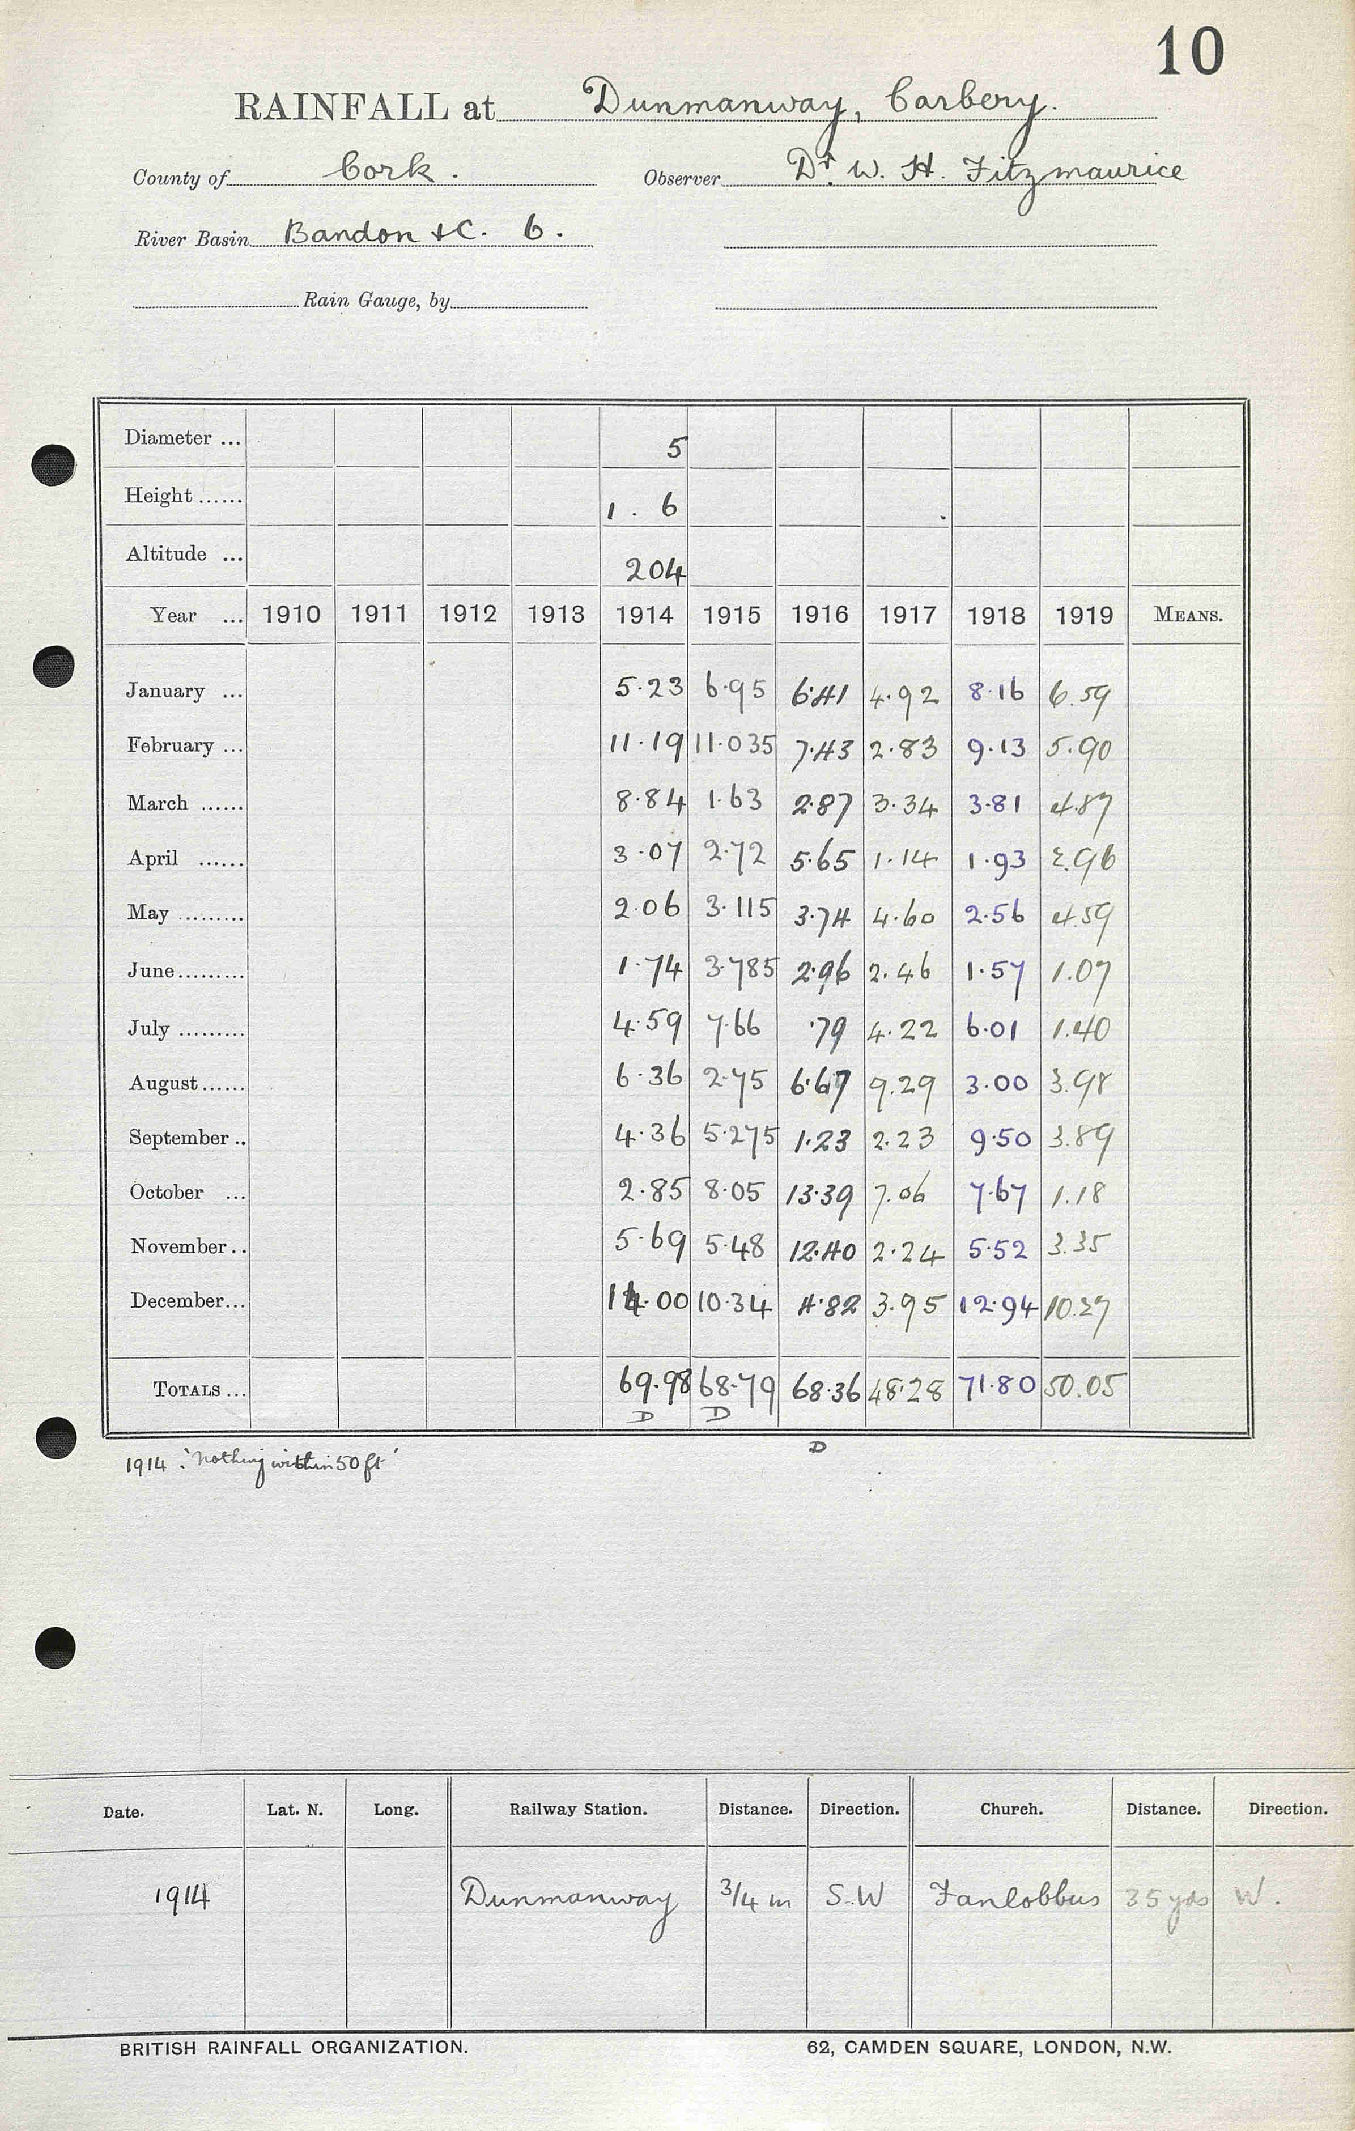 10
RAINFALL at Dunmanway, Carbery.
County of Cork. Observer Dr. W. H. Fitzmaurice
River Basin Bandon &c. 6.
Rain Gauge, by
Diameter ... 5
Height ...... 1 . 6
Altitude ... 204
Year ... 1910 1911 1912 1913 1914 1915 1916 1917 1918 1919 MEANS.
January ... 5.23 6.95 6.41 4.92 8.16 6.59
February ... 11.19 11.035 7.43 2.83 9.13 5.90
March ...... 8.84 1.63 2.87 3.34 3.81 4.87
April ...... 3.07 2.72 5.65 1.14 1.93 2.96
May ......... 2.06 3.115 3.74 4.60 2.56 4.59
June ......... 1.74 3.785 2.96 2.46 1.57 1.07
July ......... 4.59 7.66 .79 4.22 6.01 1.40
August ...... 6.36 2.75 6.67 9.29 3.00 3.98
September .. 4.36 5.275 1.23 2.23 9.50 3.89
October ... 2.85 8.05 13.39 7.06 7.67 1.18
November .. 5.69 5.48 12.40 2.24 5.52 3.35
December ... 14.00 10.34 4.82 3.95 12.94 10.27
TOTALS ... 69.98 68.79 68.36 48.28 71.80 50.05
D D D
1914 : 'Nothing within 50 ft'
Date. Lat. N. Long. Railway Station. Distance. Direction. Church. Distance. Direction.
1914 Dunmanway 3/4 m S.W Fanlobbus 35 yds W.
BRITISH RAINFALL ORGANIZATION. 62, CAMDEN SQUARE, LONDON, N.W.